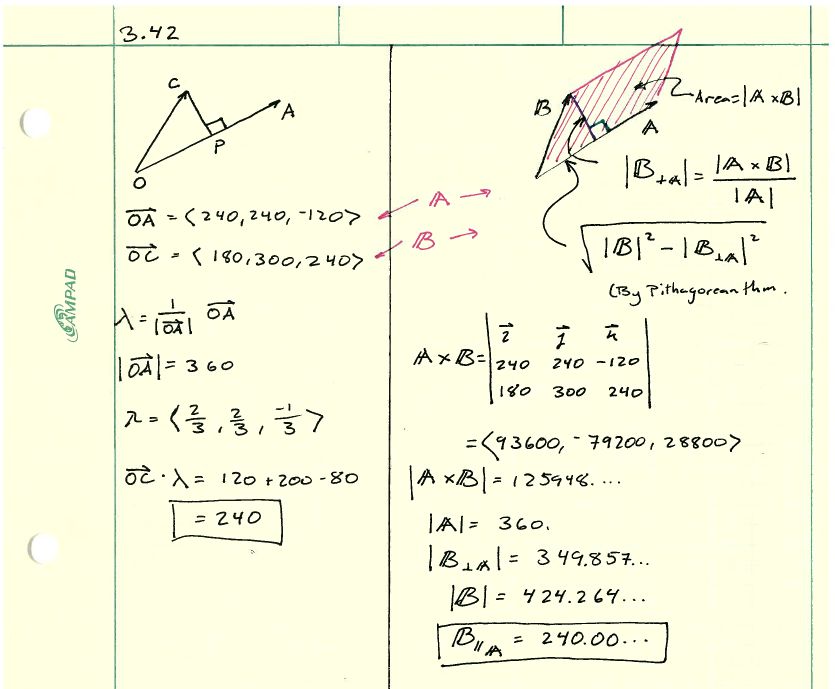 3.42
C
A
P
O
OA = <240,240,-120>
OC = <180,300,240>
A
B
λ = 1/|OA| OA
|OA| = 360
λ = <2/3, 2/3, -1/3>
OC · λ = 120 + 200 - 80
= 240
AMPAD
B
A
Area = |A × B|
|B⊥A| = |A × B| / |A|
√|B|² - |B⊥A|²
(By Pithagorean thm.
A × B = | i j k
240 240 -120
180 300 240 |
= <93600, -79200, 28800>
|A × B| = 125948....
|A| = 360.
|B⊥A| = 349.857...
|B| = 424.264...
B∥A = 240.00...